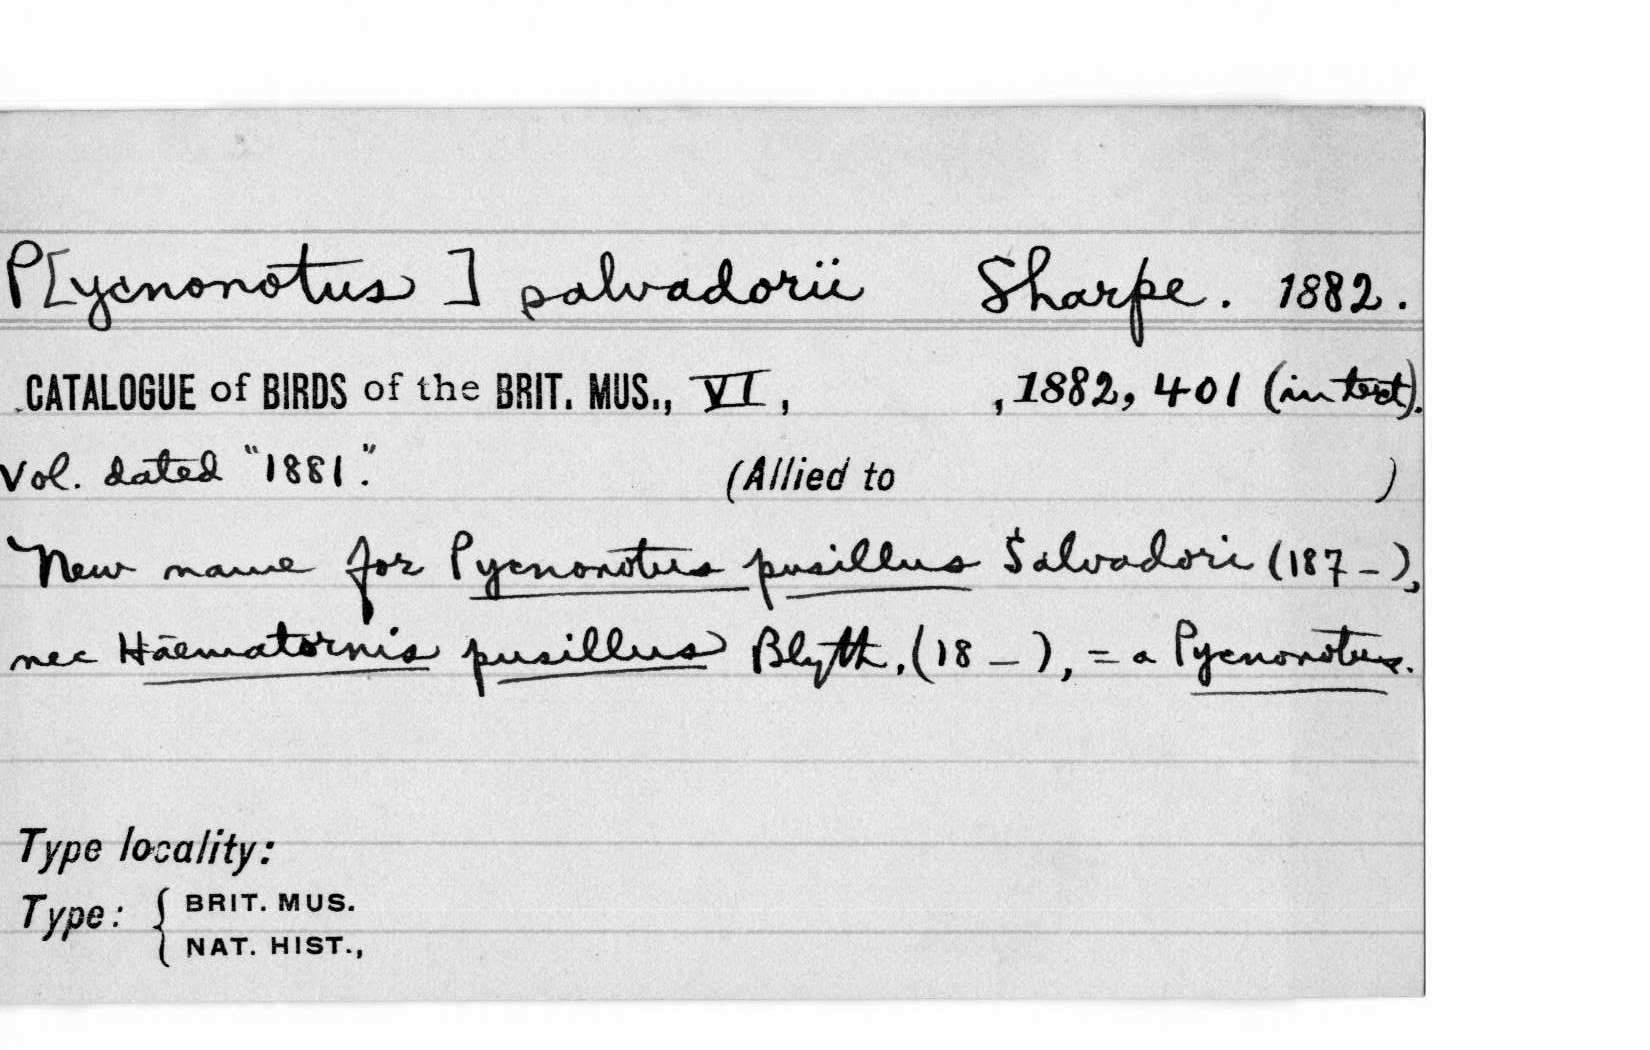 P[ycnonotus ] salvadorii Sharpe. 1882.
CATALOGUE of BIRDS of the BRIT. MUS., VI, , 1882, 401 (in text).
Vol. dated "1881". (Allied to )
New name for Pycnonotus pusillus Salvadori (187-),
nec Haematornis pusillus Blyth, (18-), = a Pycnonotus.
Type locality:
Type: { BRIT. MUS.
NAT. HIST.,